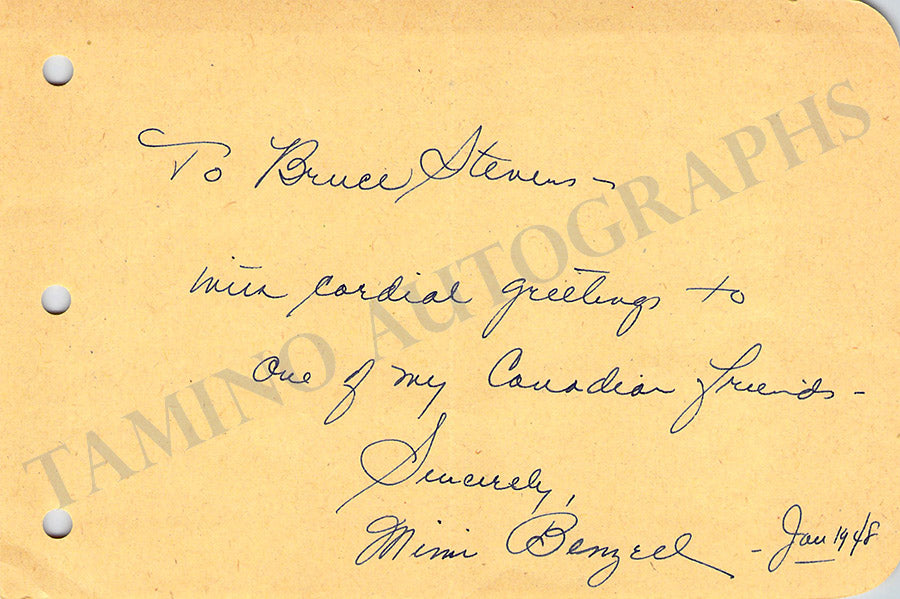 To Bruce Stevens -
with cordial greetings to
one of my Canadian friends -
Sincerely,
Mimi Benzell - Jan 1948
TAMINO AUTOGRAPHS